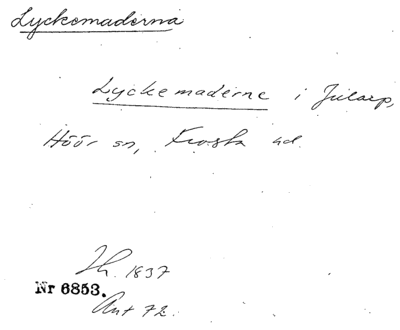 Lyckomaderna
Lyckemaderne i Julарp,
Höör sn, Frosta hd.
Lh. 1837
Nr 6853.
Ant 72.